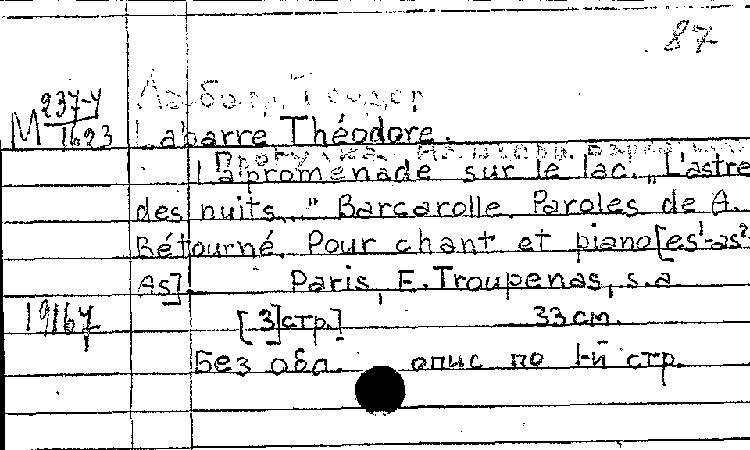 87
Лабарр, Теодор
M 237-4/1623
Labarre Théodore.
Прогулка
La promenade sur le lac. „L'astre
des nuits..." Barcarolle. Paroles de A.
Bétourné. Pour chant et piano [es¹-as²
As]. Paris, E. Troupenas, s.a.
19/67
[3] стр.] 33 cm.
Без обл. опис по 1-й стр.